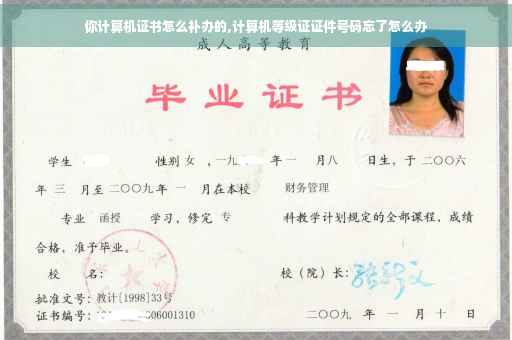 你计算机证书怎么补办的,计算机等级证证件号码忘了怎么办
成人高等教育
毕业证书
学生 性别 女 ，一九 年 一 月八 日生，于 二〇〇六
年 三 月至 二〇〇九 年 一 月在本校 财务管理
专业 函授 学习，修完 专 科教学计划规定的全部课程，成绩
合格，准予毕业。
校 名： 校（院）长：
批准文号：教计[1998]33号
证书编号： 6001310 二〇〇九 年 一 月 十 日